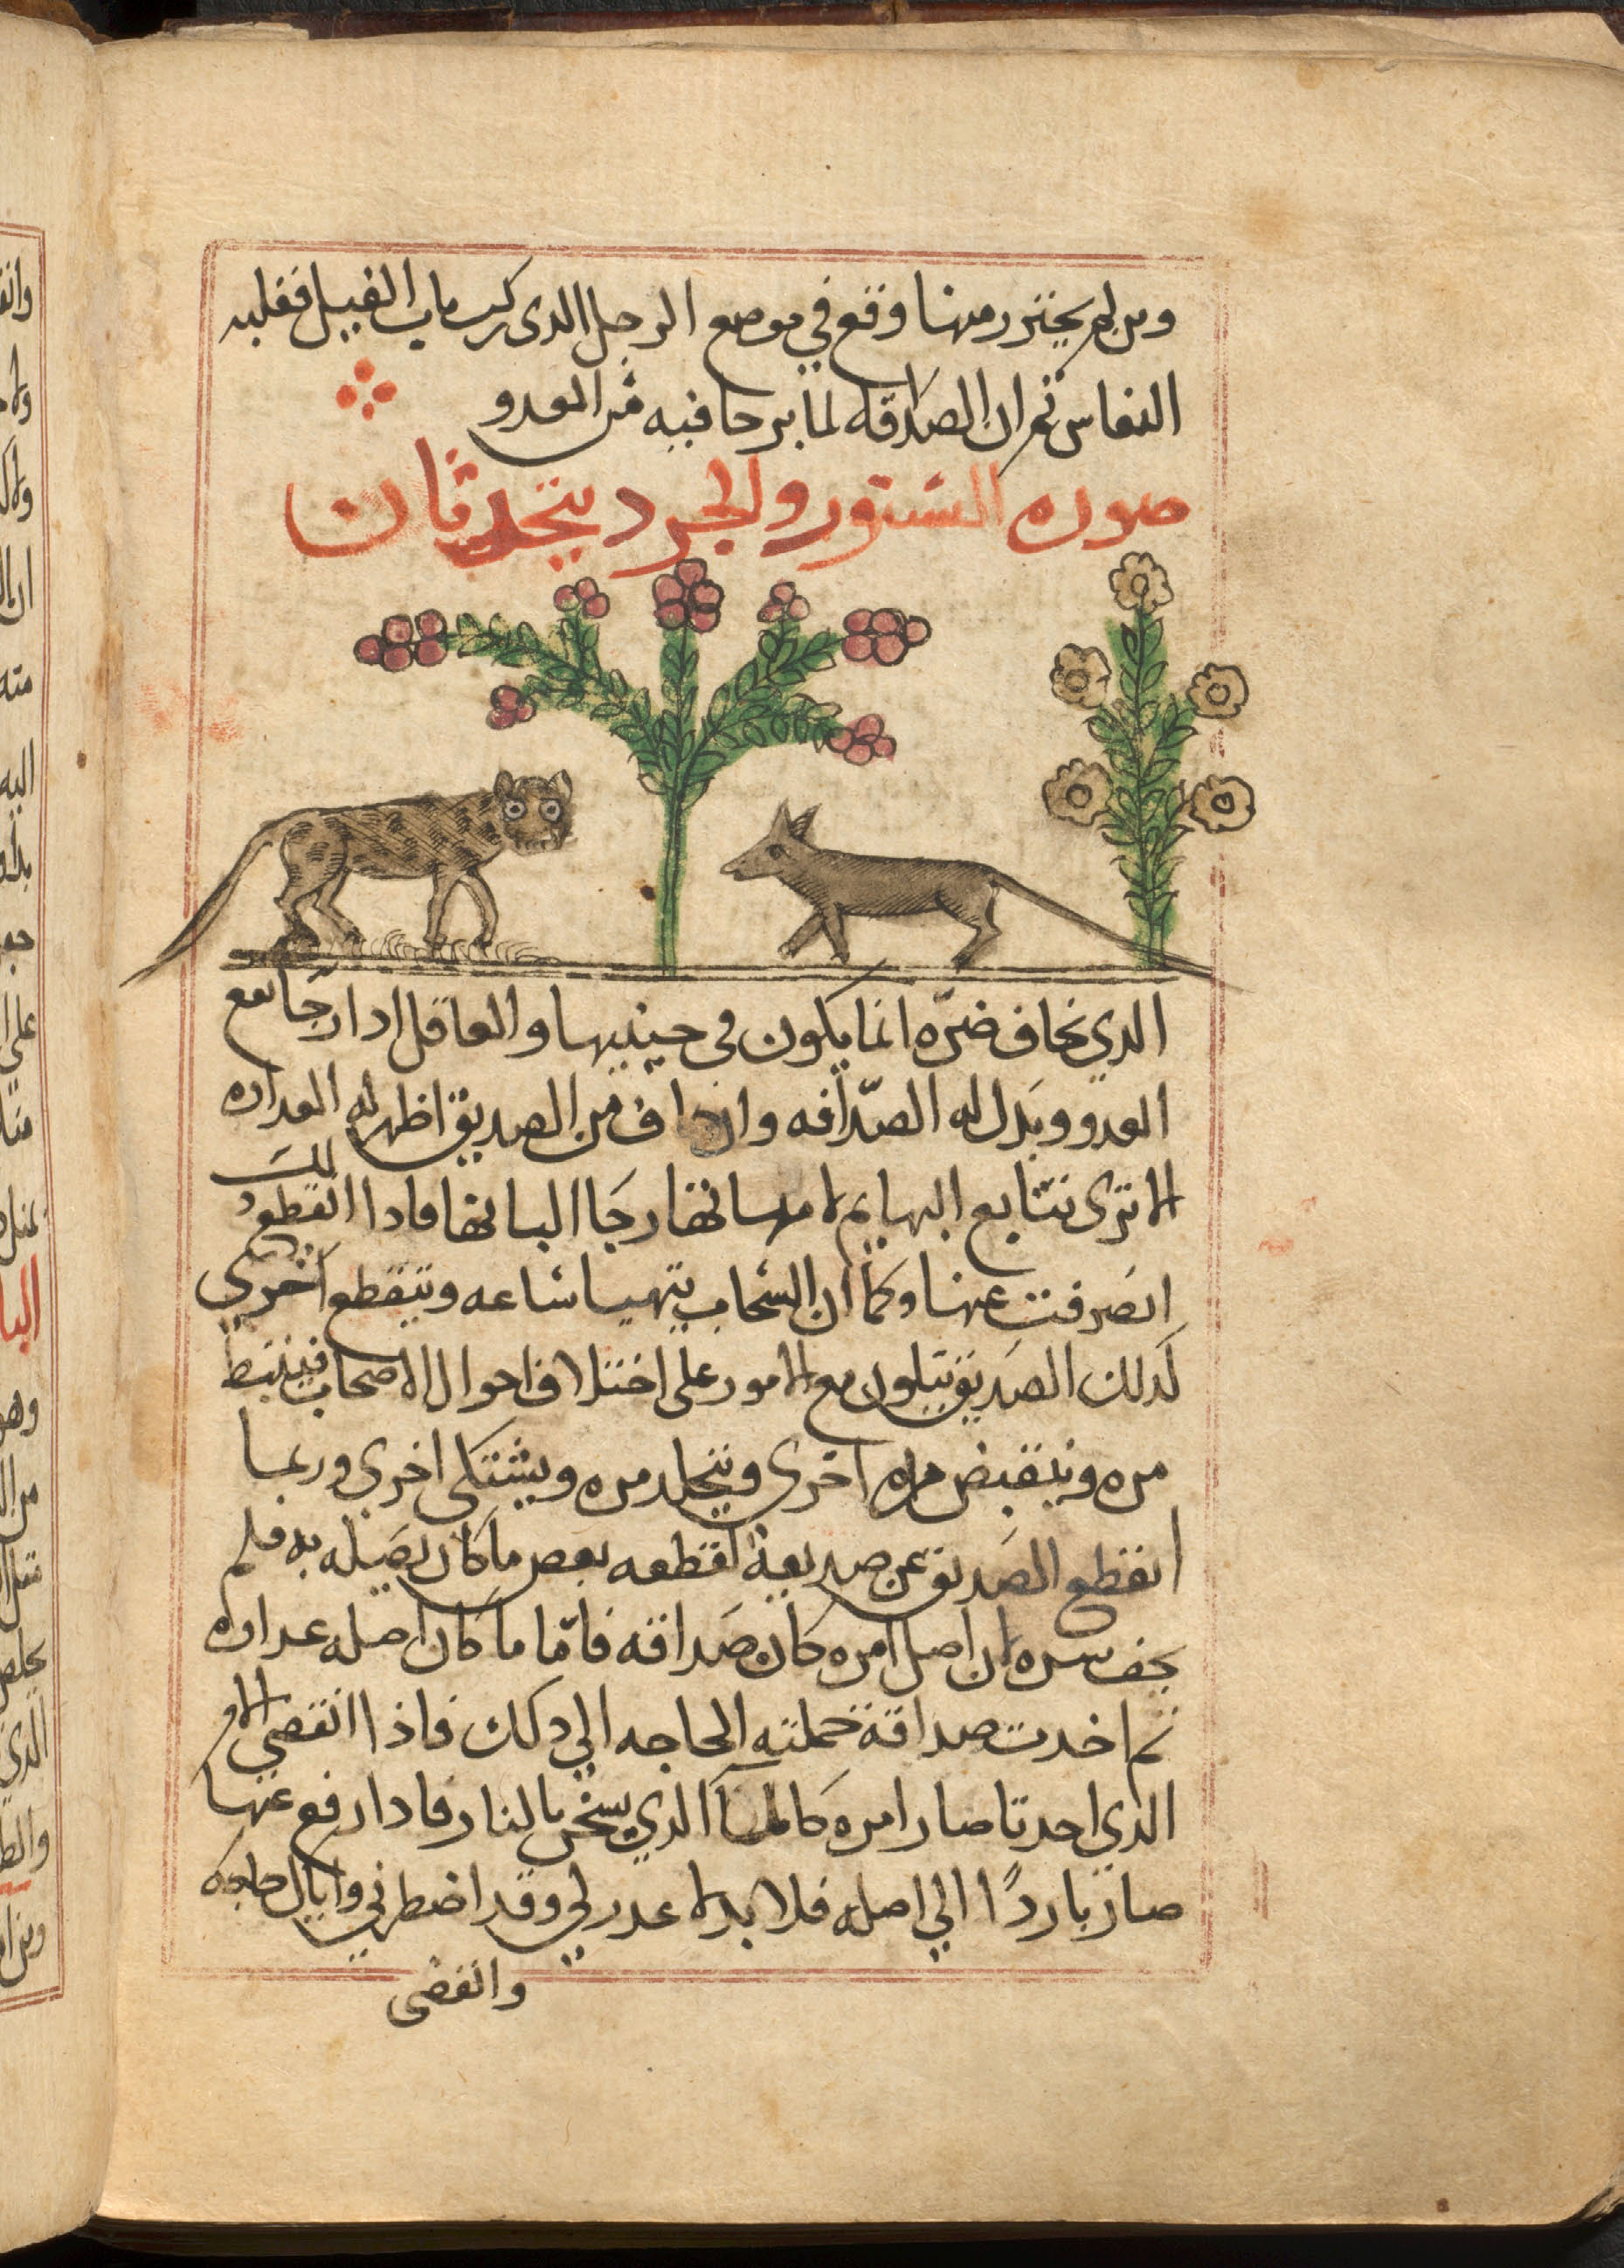 ومن لم يحترز منها وقع في موضع الرجل الدى ركب ناب الفيل فغلبه
النعاس ثم ان الصداقه لما يرجا فيه من العدو
صوره السنور والجرد يتحدثان
الدي نخاف ضره انما يكون في حينيها والعاقل ادا رجا نفع
العدو وبدل له الصداقه وان خاف من الصديق اظهر له العداوه
الا ترى تتابع البهايم لامهاتها رجا البانها فادا انقطع دلك
انصرفت عنها وكما ان السحاب يتهيا ساعه وينقطع اخرى
كدلك الصديق يتلون مع الامور على اختلاف احوال الاصحاب فينبسط
مره وينقبض مره اخرى ويتجلد مره ويشتكى اخرى وربما
انقطع الصديق عن صديقه لقطعه بعص ما كان يصله به فلم
يخف سره لان اصل امره كان صداقه فاما ما كان اصله عداوه
تم احدت صداقة حملته الحاجه الي دلك فاذا انقضى الامر
الذي احدتا صار امره كالما الذي يسخن بالنار فادا رفع عنها
صار باردًا الي اصله فلا بد لا عدر لي وقد اضطرني واياك حاجه
وانقضى